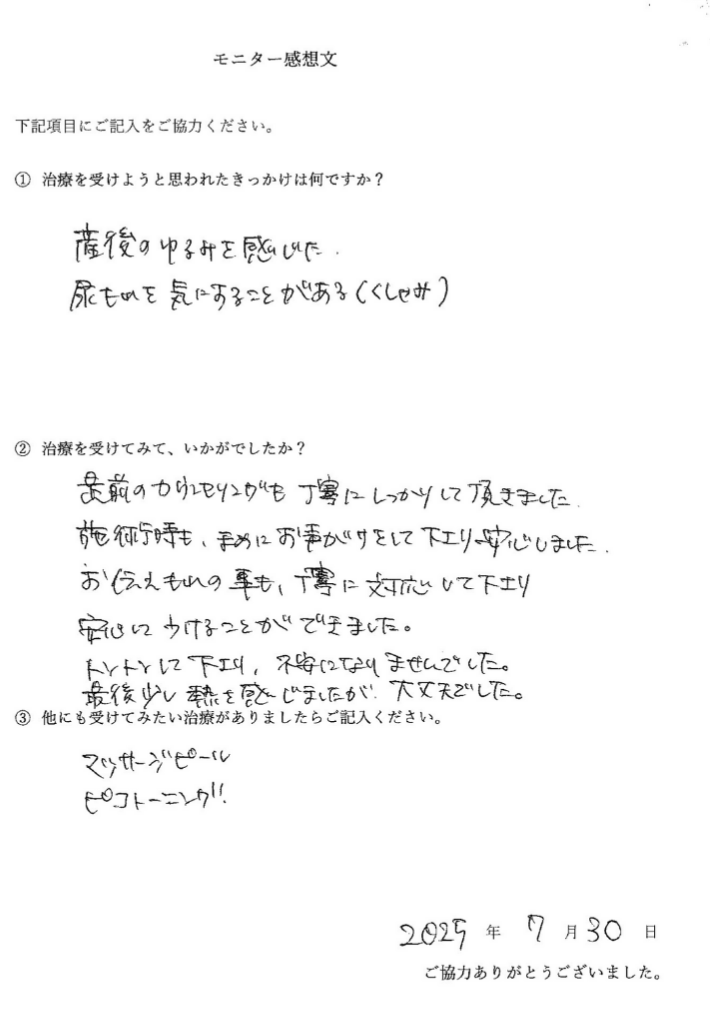 モニター感想文
下記項目にご記入をご協力ください。
① 治療を受けようと思われたきっかけは何ですか？
産後のゆるみを感じた.
尿もれを気にすることがある(くしゃみ)
② 治療を受けてみて、いかがでしたか？
最前のカウンセリングも丁寧にしっかりして頂きました.
施術時も、まめにお声がけをして下さり安心しました.
お伝えもれの事も、丁寧に対応して下さり
安心してうけることができました。
トントンして下さり、不安になりませんでした。
最後少し熱を感じましたが、大丈夫でした。
③ 他にも受けてみたい治療がありましたらご記入ください。
マッサージピール
ピコトーニング.
2025 年 7 月 30 日
ご協力ありがとうございました。